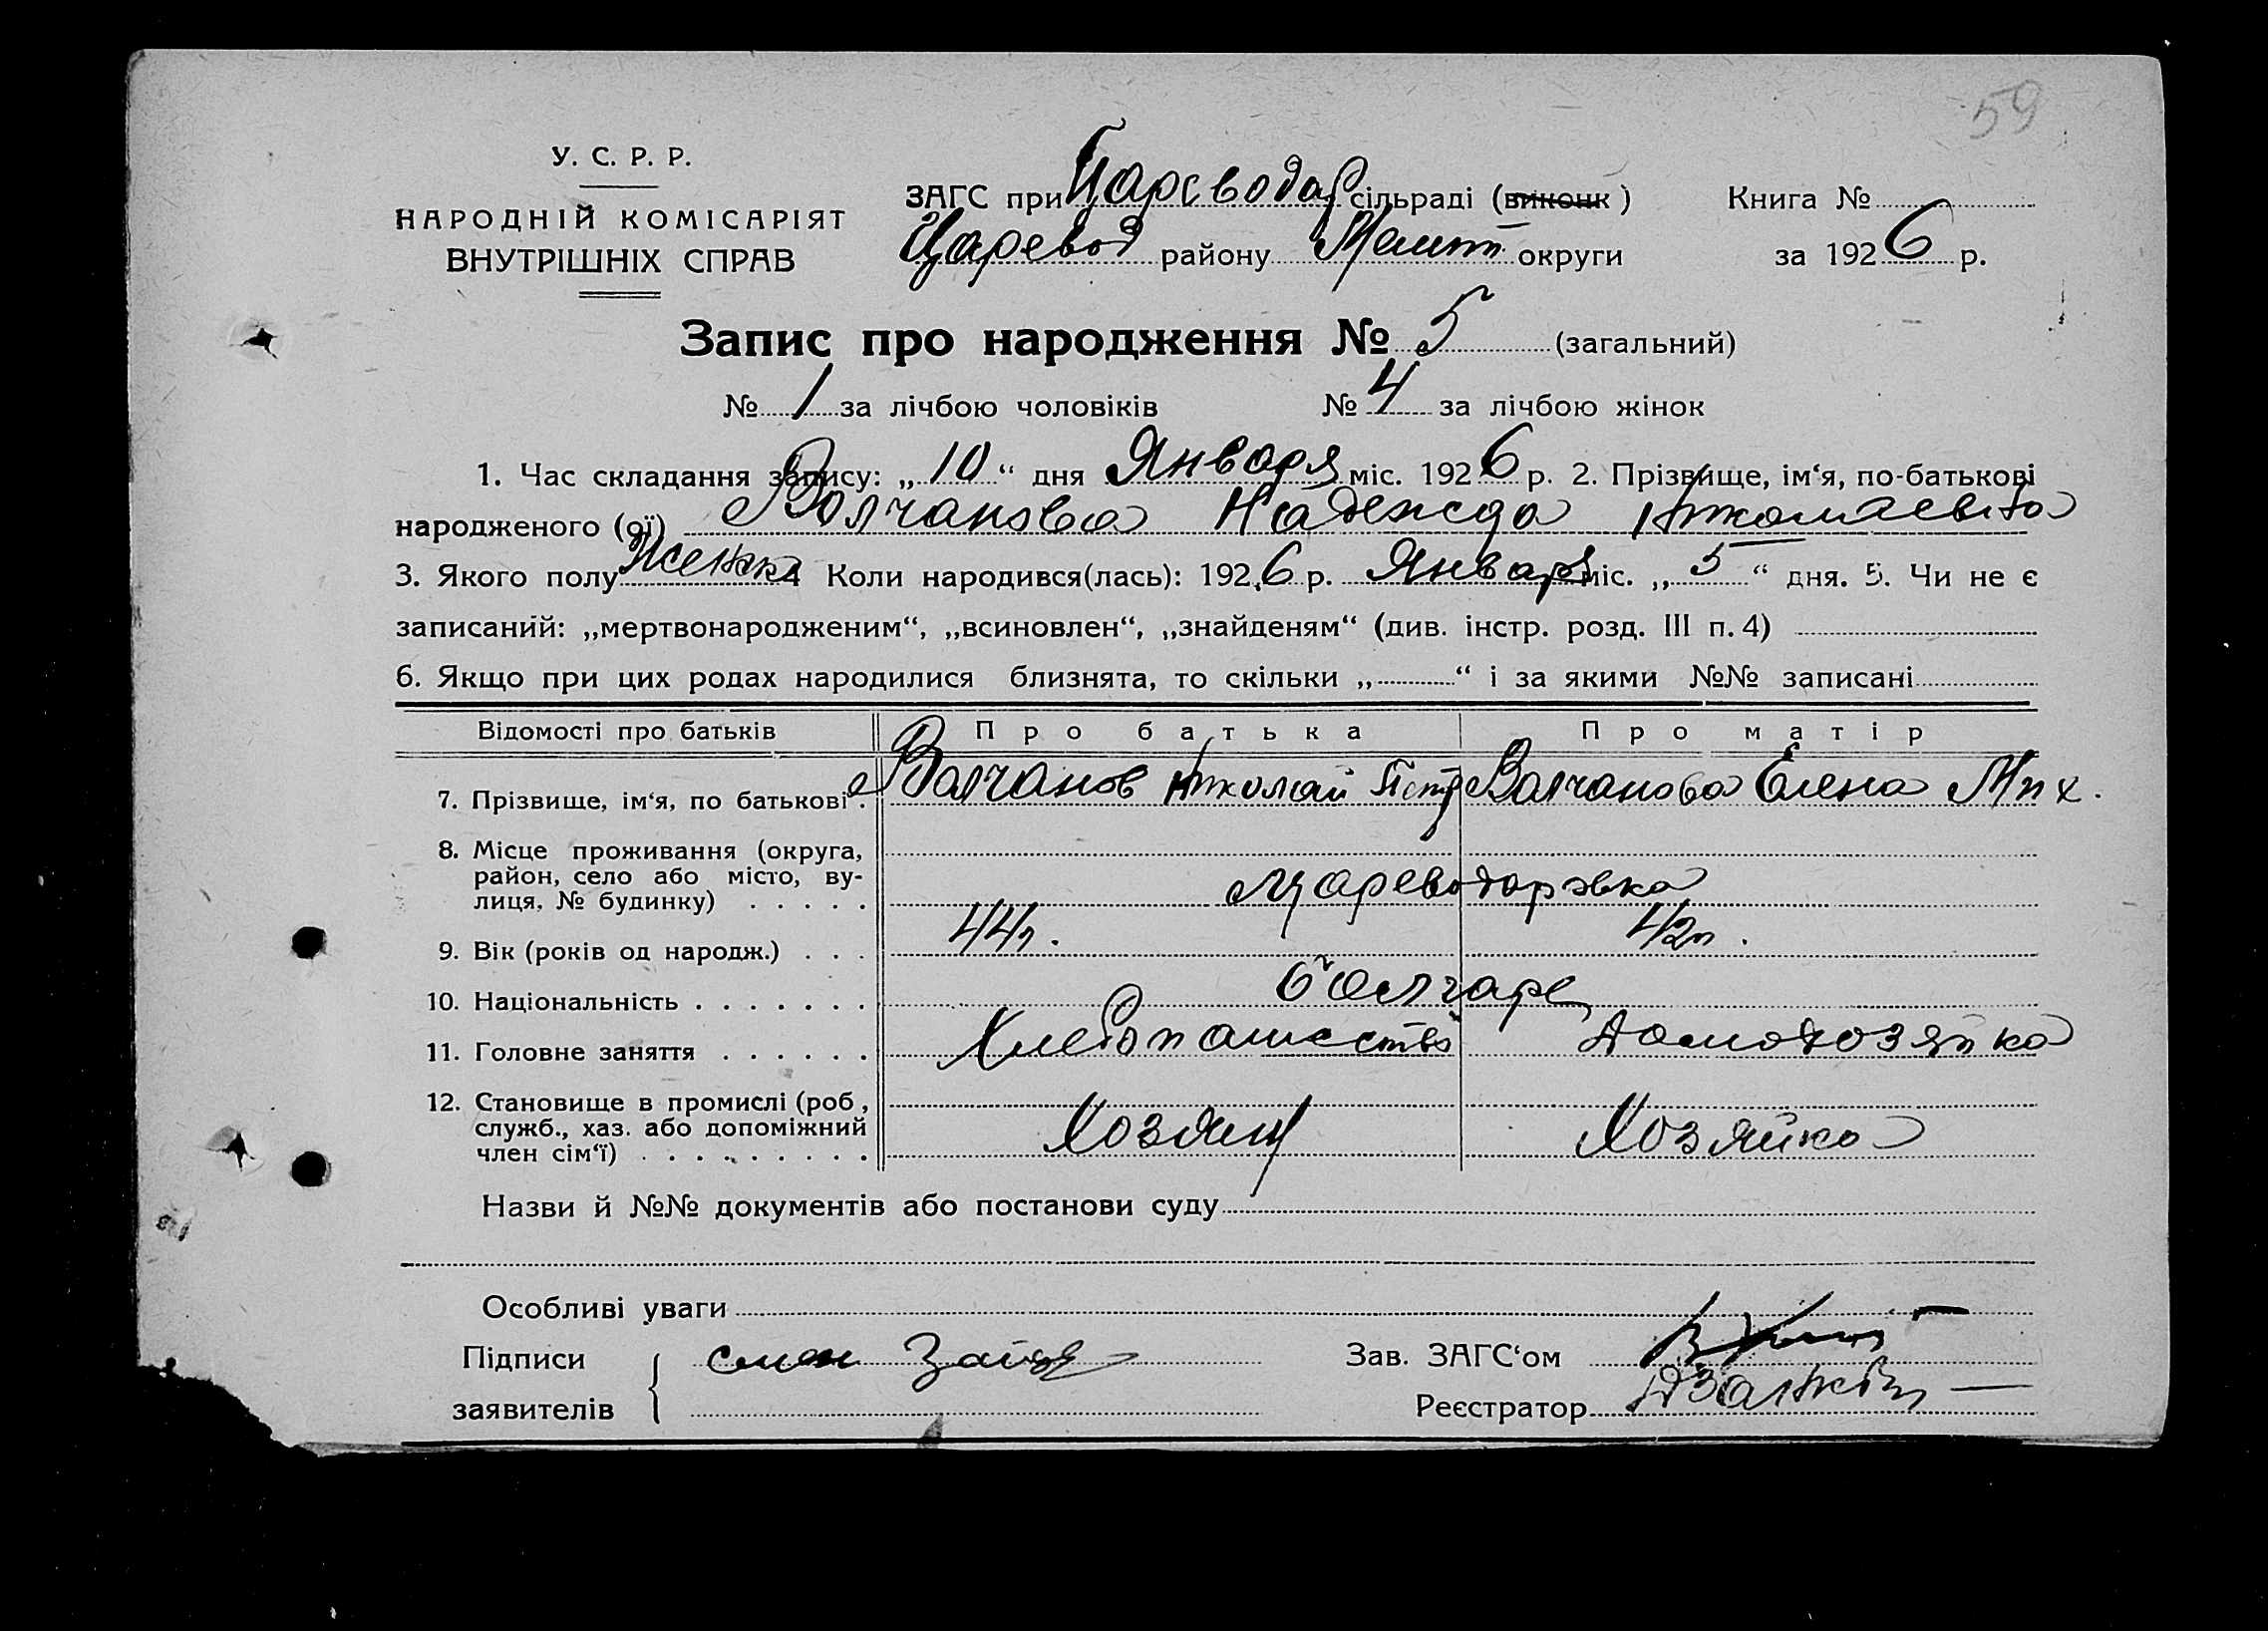 59
У. С. Р. Р.
НАРОДНІЙ КОМІСАРІЯТ
ВНУТРІШНІХ СПРАВ
ЗАГС при Цареводар сільраді (виконк )
Книга №
Царевод району Меліт округи
за 1926 р.
Запис про народження № 5 (загальний)
№ 1 за лічбою чоловіків № 4 за лічбою жінок
1. Час складання запису: „ 10 “ дня Января міс. 1926 р. 2. Прізвище, ім‘я, по-батькові
народженого (ої) Волчанова Надежда Николаевна
3. Якого полу Женск 4 Коли народився(лась): 1926 р. Января міс. „ 5 “ дня. 5. Чи не є
записаний: „мертвонародженим“, „всиновлен“, „знайденям“ (див. інстр. розд. III п. 4)
6. Якщо при цих родах народилися близнята, то скільки „ “ і за якими №№ записані
Відомості про батьків Про батька Про матір
7. Прізвище, ім‘я, по батькові . Волчанов Николай Петр Волчанова Елена Мих.
8. Місце проживання (округа,
район, село або місто, ву-
лиця, № будинку) . . . . . Цареводаровка
9. Вік (років од народж.) . . . 44л. 42л.
10. Національність . . . . . . . болгаре
11. Головне заняття . . . . . . Хлебопашество Домохозяйка
12. Становище в промислі (роб ,
служб., хаз. або допоміжний
член сім‘ї) . . . . . . . . . Хозяин Хозяйка
Назви й №№ документів або постанови суду
Особливі уваги
Підписи
Зав. ЗАГС‘ом
заявителів
Реєстратор